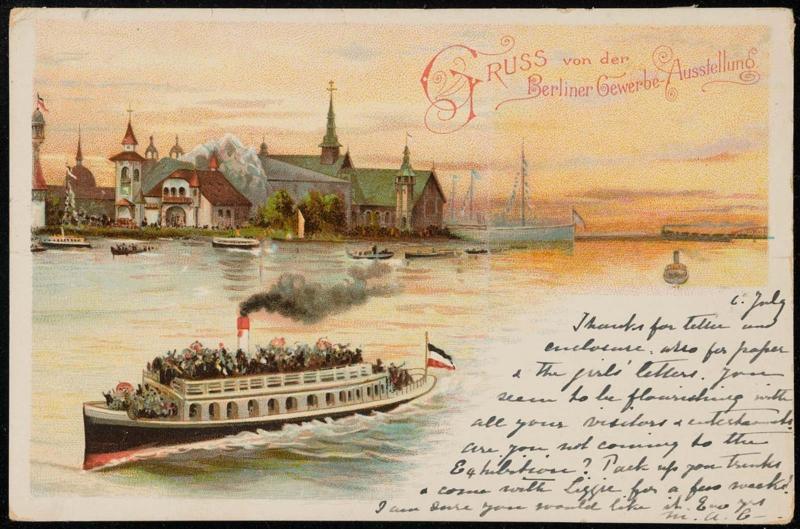 GRUSS von der
Berliner Gewerbe-Ausstellung
6. July
Thanks for letter and
enclosure. also for paper
& the girls letters. You
seem to be flourishing with
all your visitors & entertainments
are you not coming to the
Exhibition? Pack up your trunks
& come with Lizzie for a few weeks!
I am sure you would like it. Ever yrs
M. A. C.